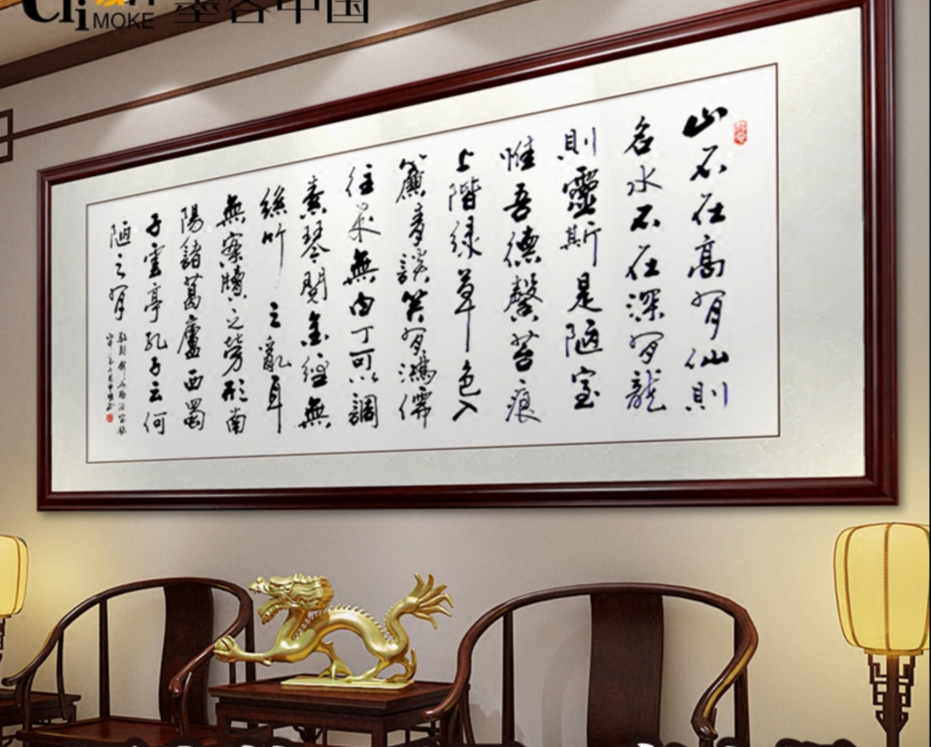 MOKE 墨客中国
山不在高有仙則
名水不在深有龍
則靈斯是陋室
惟吾德馨苔痕
上階緑草色入
簾青談笑有鴻儒
往來無白丁可以調
素琴閱金經無
絲竹之亂耳
無案牘之勞形南
陽諸葛廬西蜀
子雲亭孔子云何
陋之有